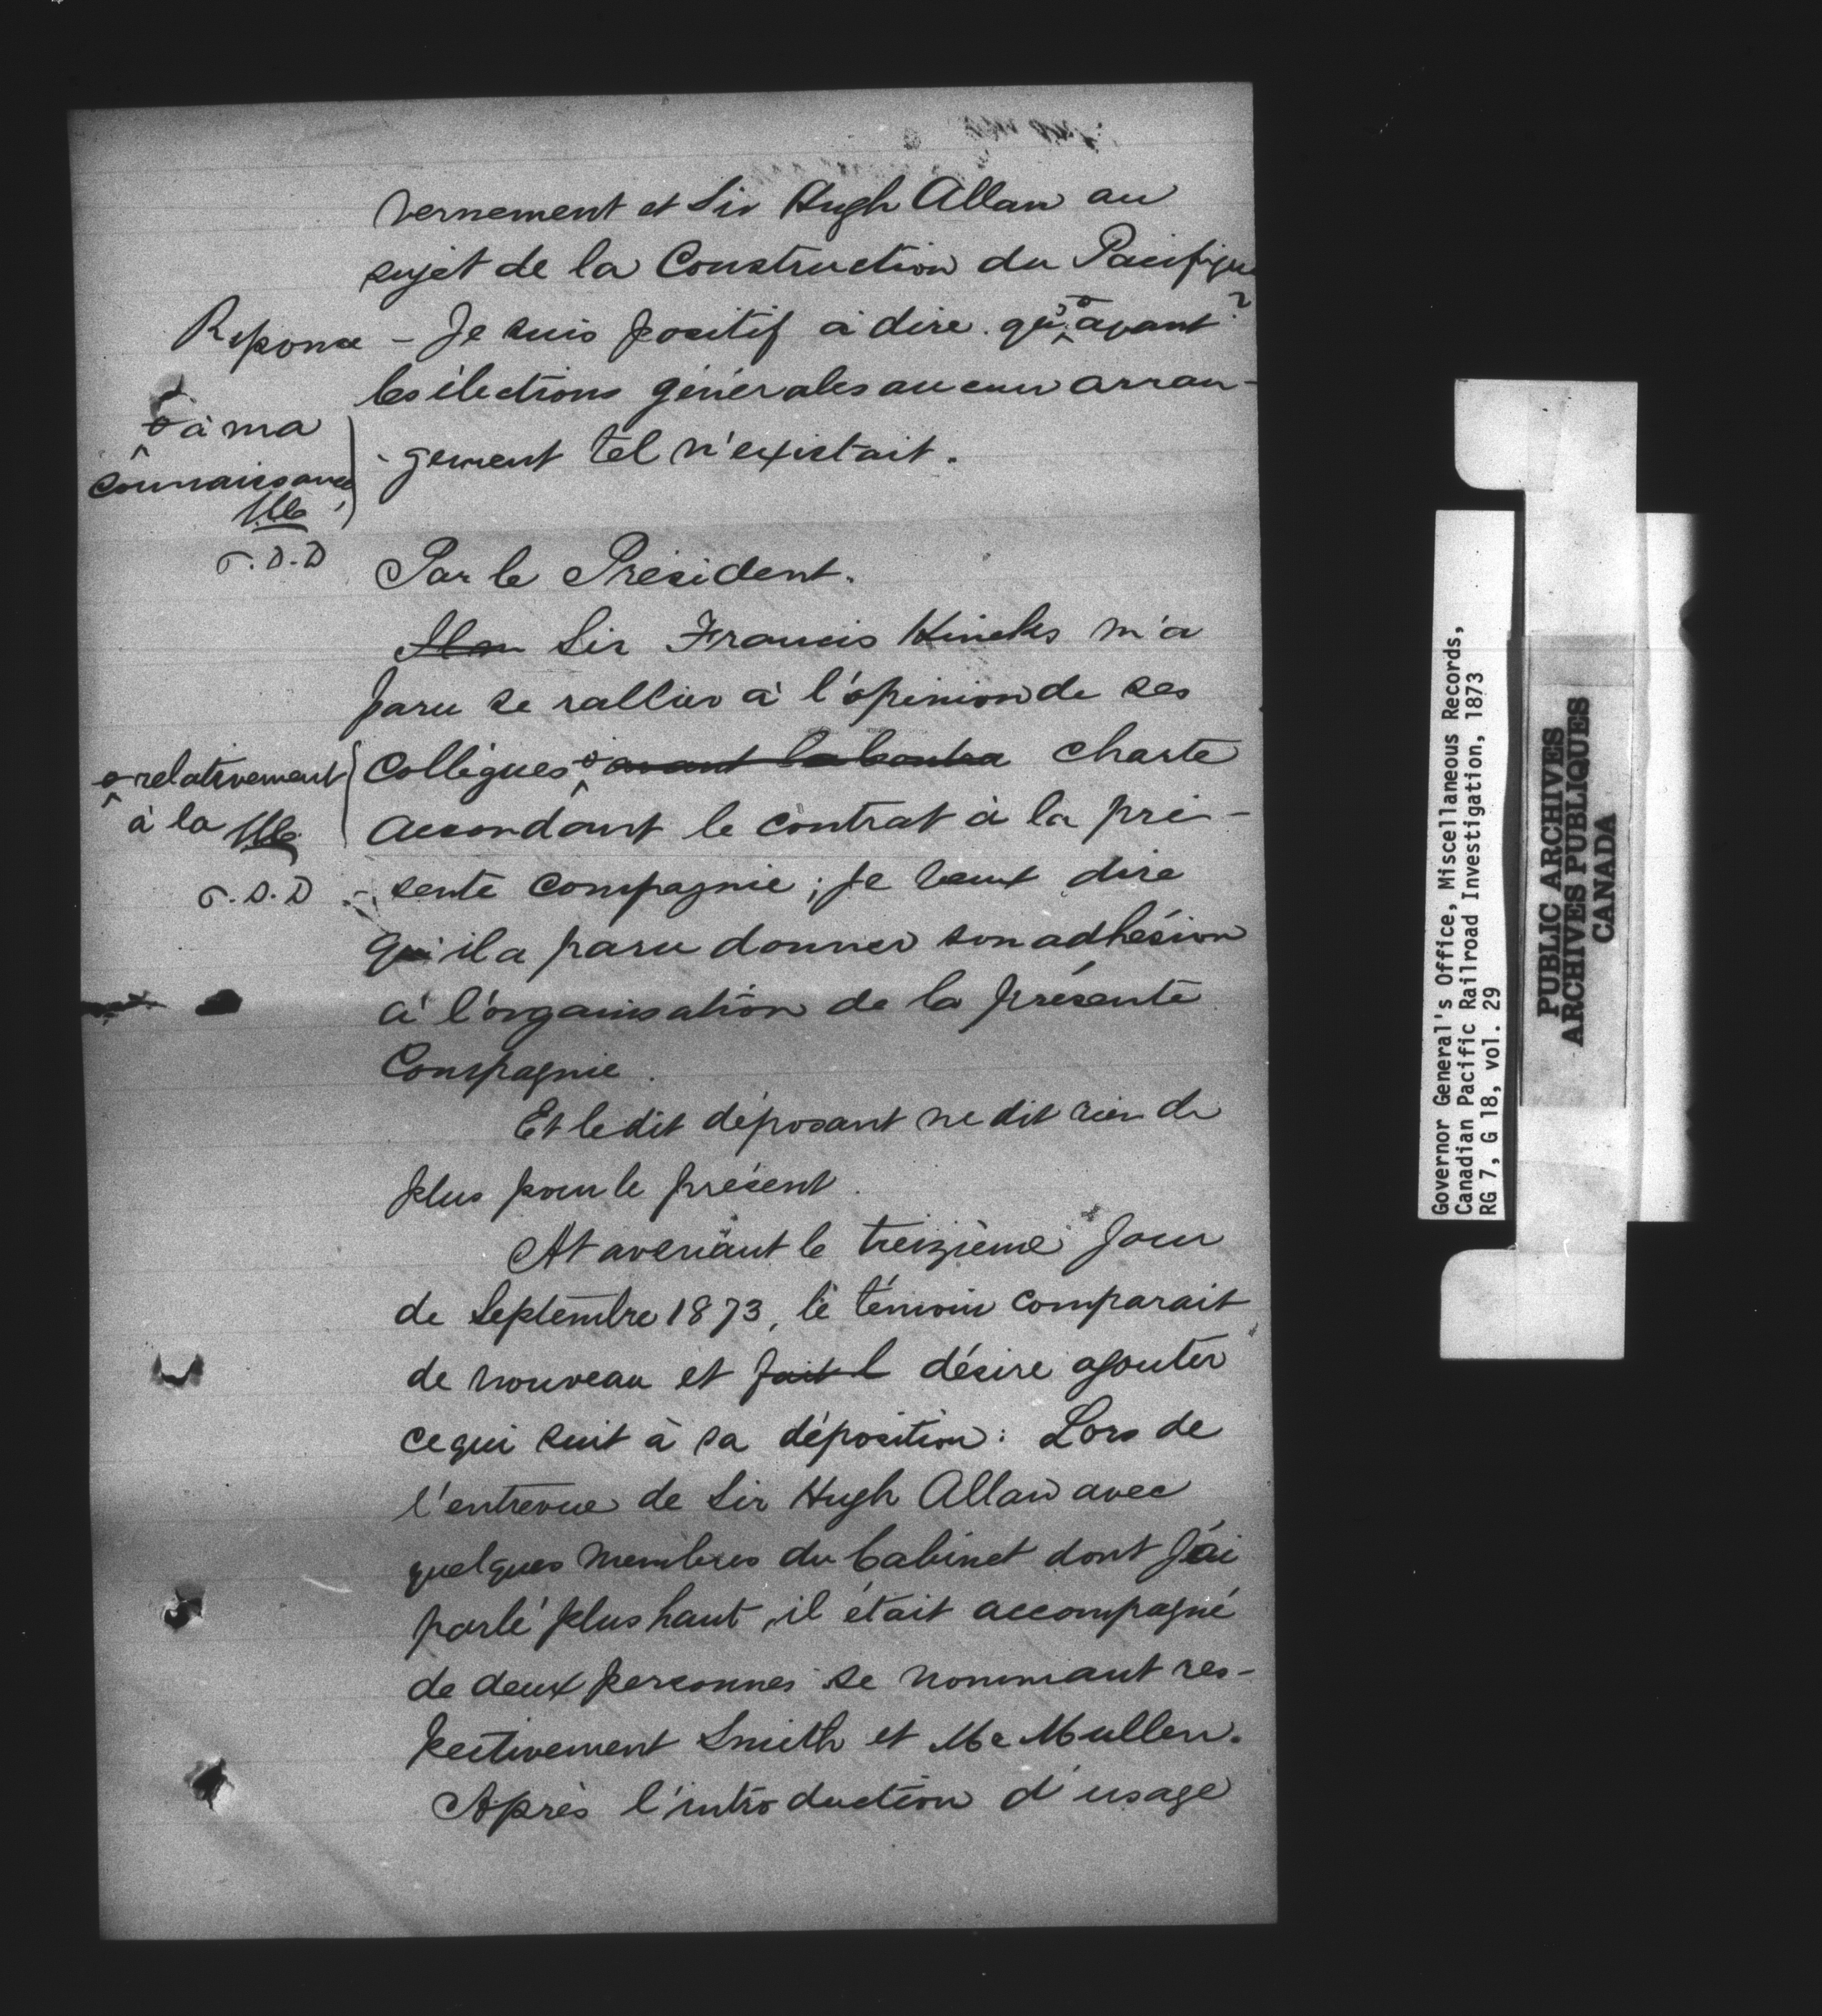 vernement et Sir Hugh Allan au
sujet de la Construction du Pacifique?
Reponse - Je suis positif à dire qu'avant
les élections générales aucun arran-
à ma
connaissance,
-gement tel n'existait.
σ.D.D
Par le Président.
Sir Francis Hincks m'a
paru se rallier à l'opinion de ses
Collègues avant charte
relativement
à la
accordant le contrat à la pré-
σ.D.D
-sente compagnie; je veux dire
qu'il a paru donner son adhésion
à l'organisation de la présente
Compagnie.
Et le dit déposant ne dit rien de
plus pour le présent.
At avenant le treizième jour
de Septembre 1873, le témoin comparait
de nouveau et fait l désire ajouter
ce qui suit à sa déposition: Lors de
l'entrevue de Sir Hugh Allan avec
quelques membres du Cabinet dont j'ai
parlé plus haut, il était accompagné
de deux personnes se nommant res-
pectivement Smith et Mc Mullen.
Après l'introduction d'usage
Governor General's Office, Miscellaneous Records,
Canadian Pacific Railroad Investigation, 1873
RG 7, G 18, vol. 29
PUBLIC ARCHIVES
ARCHIVES PUBLIQUES
CANADA